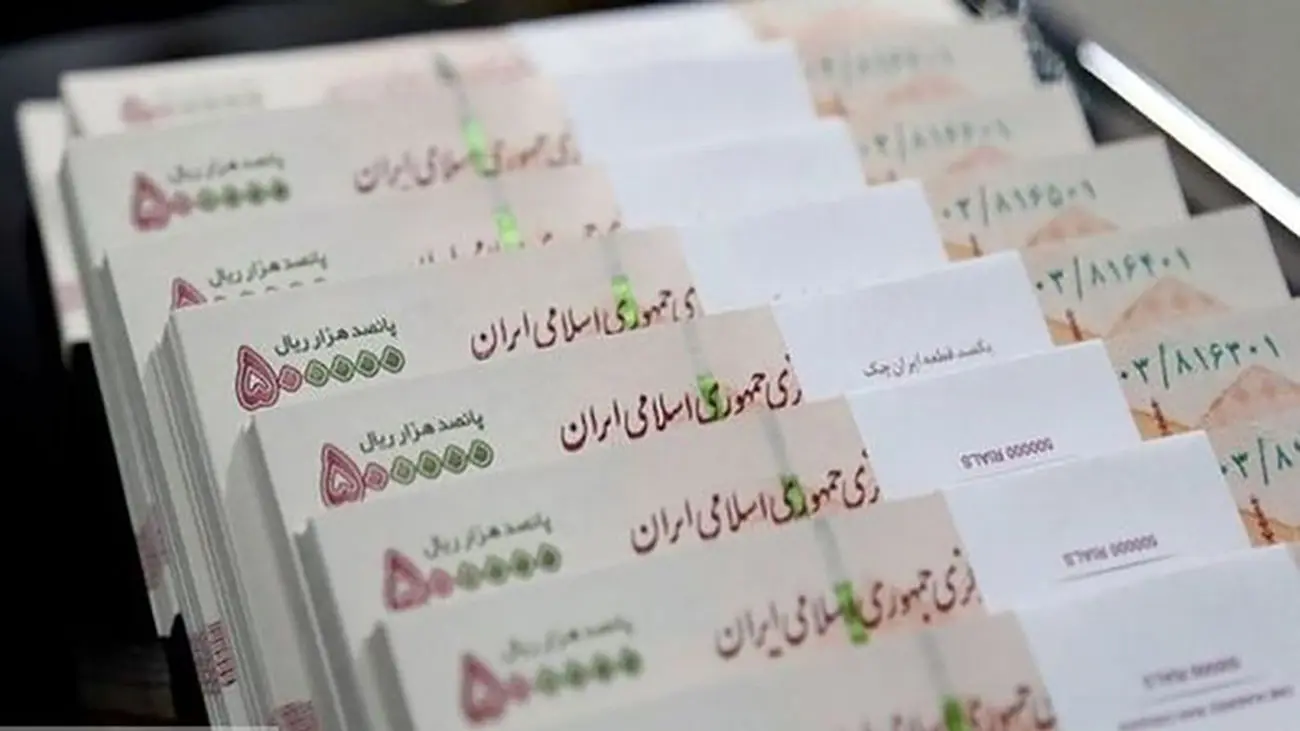 پانصد هزار ریال
۵۰۰۰۰۰
جمهوری اسلامی ایران
۰۳/۸۱۶۶۰۱
پانصد هزار ریال
۰۳/۸۱۶۵۰۱
پانصد هزار ریال
۵۰۰۰۰۰
جمهوری اسلامی ایران
۰۳/۸۱۶۴۰۱
پانصد هزار ریال
۵۰۰۰۰۰
جمهوری اسلامی ایران
یکصد قطعه ایران چک
۰۳/۸۱۶۳۰۱
پانصد هزار ریال
۵۰۰۰۰۰
جمهوری اسلامی ایران
500000 RIALS
پانصد هزار ریال
۵۰۰۰۰۰
جمهوری اسلامی ایران
500000 RIALS
500000 RIALS